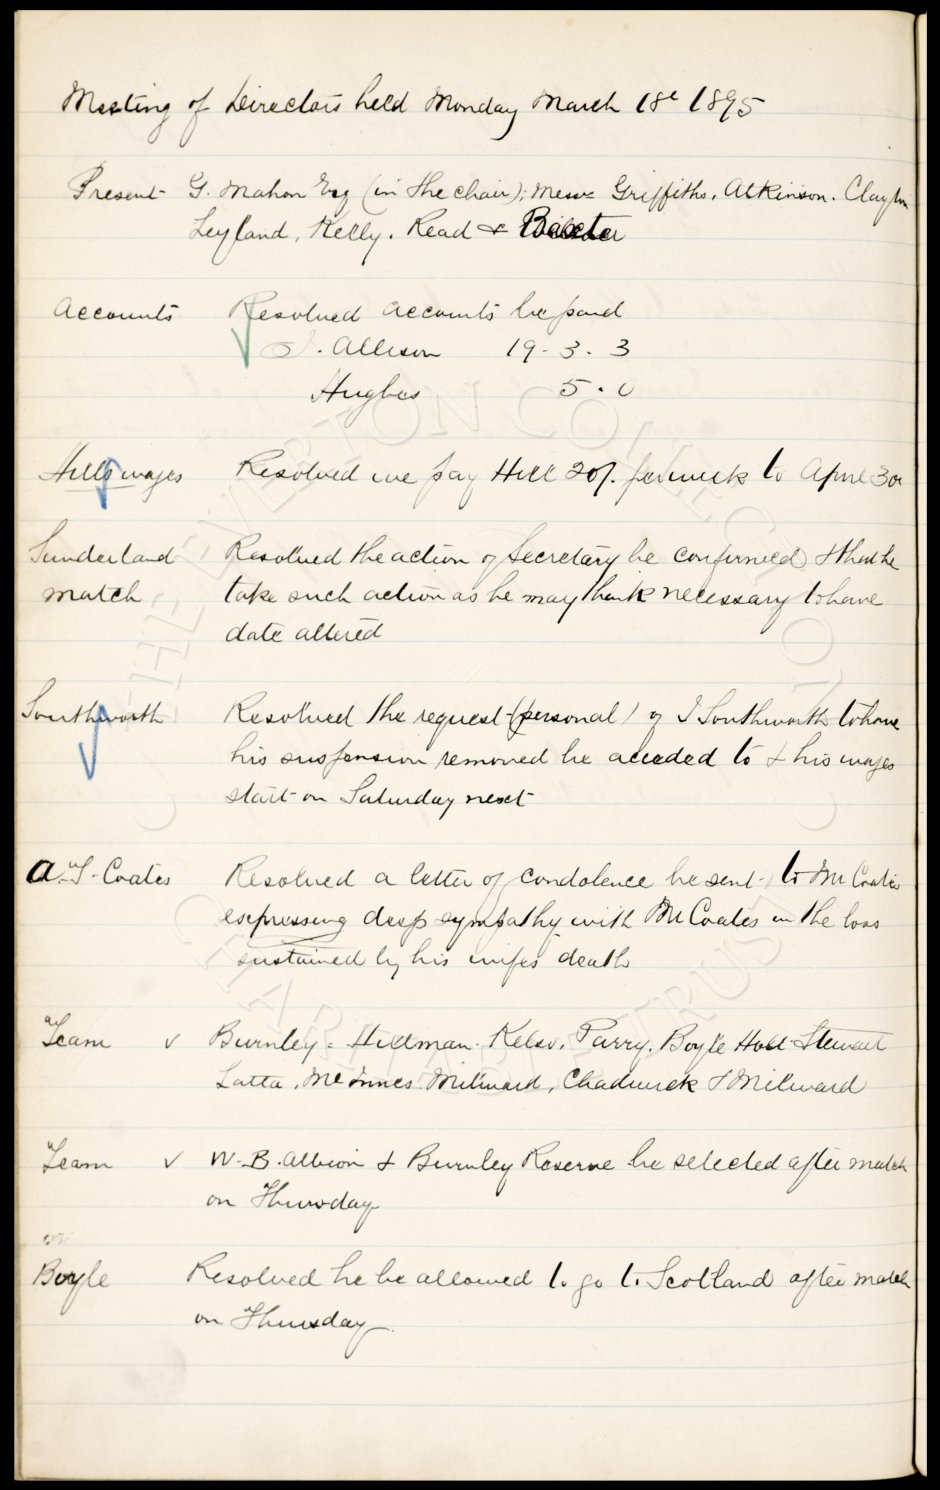 Meeting of Directors held Monday March 18th 1895
Present G. Mahon Esq (in the chair); Messrs Griffiths, Atkinson. Clayton
Leyland, Kelly. Read & Baxter
Accounts Resolved accounts be paid
J. Allison 19 - 3 - 3
Hughes 5 - 0
Hill's wages Resolved we pay Hill 20/- per week to April 30
Sunderland Resolved the action of Secretary be confirmed & that he
match take such action as he may think necessary to have
date altered
Southworth Resolved the request (personal) of J Southworth to have
his suspension removed be acceded to & his wages
start on Saturday next
A. T. Coates Resolved a letter of condolence be sent to Mr Coates
expressing deep sympathy with Mr Coates in the loss
sustained by his wifes death
Team v Burnley - Hillman. Kelso. Parry. Boyle Holt Stewart
Latta, McInnes Milward, Chadwick & Milward
Team v W. B. Albion & Burnley Reserve be selected after match
on Thursday
Boyle Resolved he be allowed to go to Scotland after match
on Thursday
© THE EVERTON COLLECTION CHARITABLE TRUST